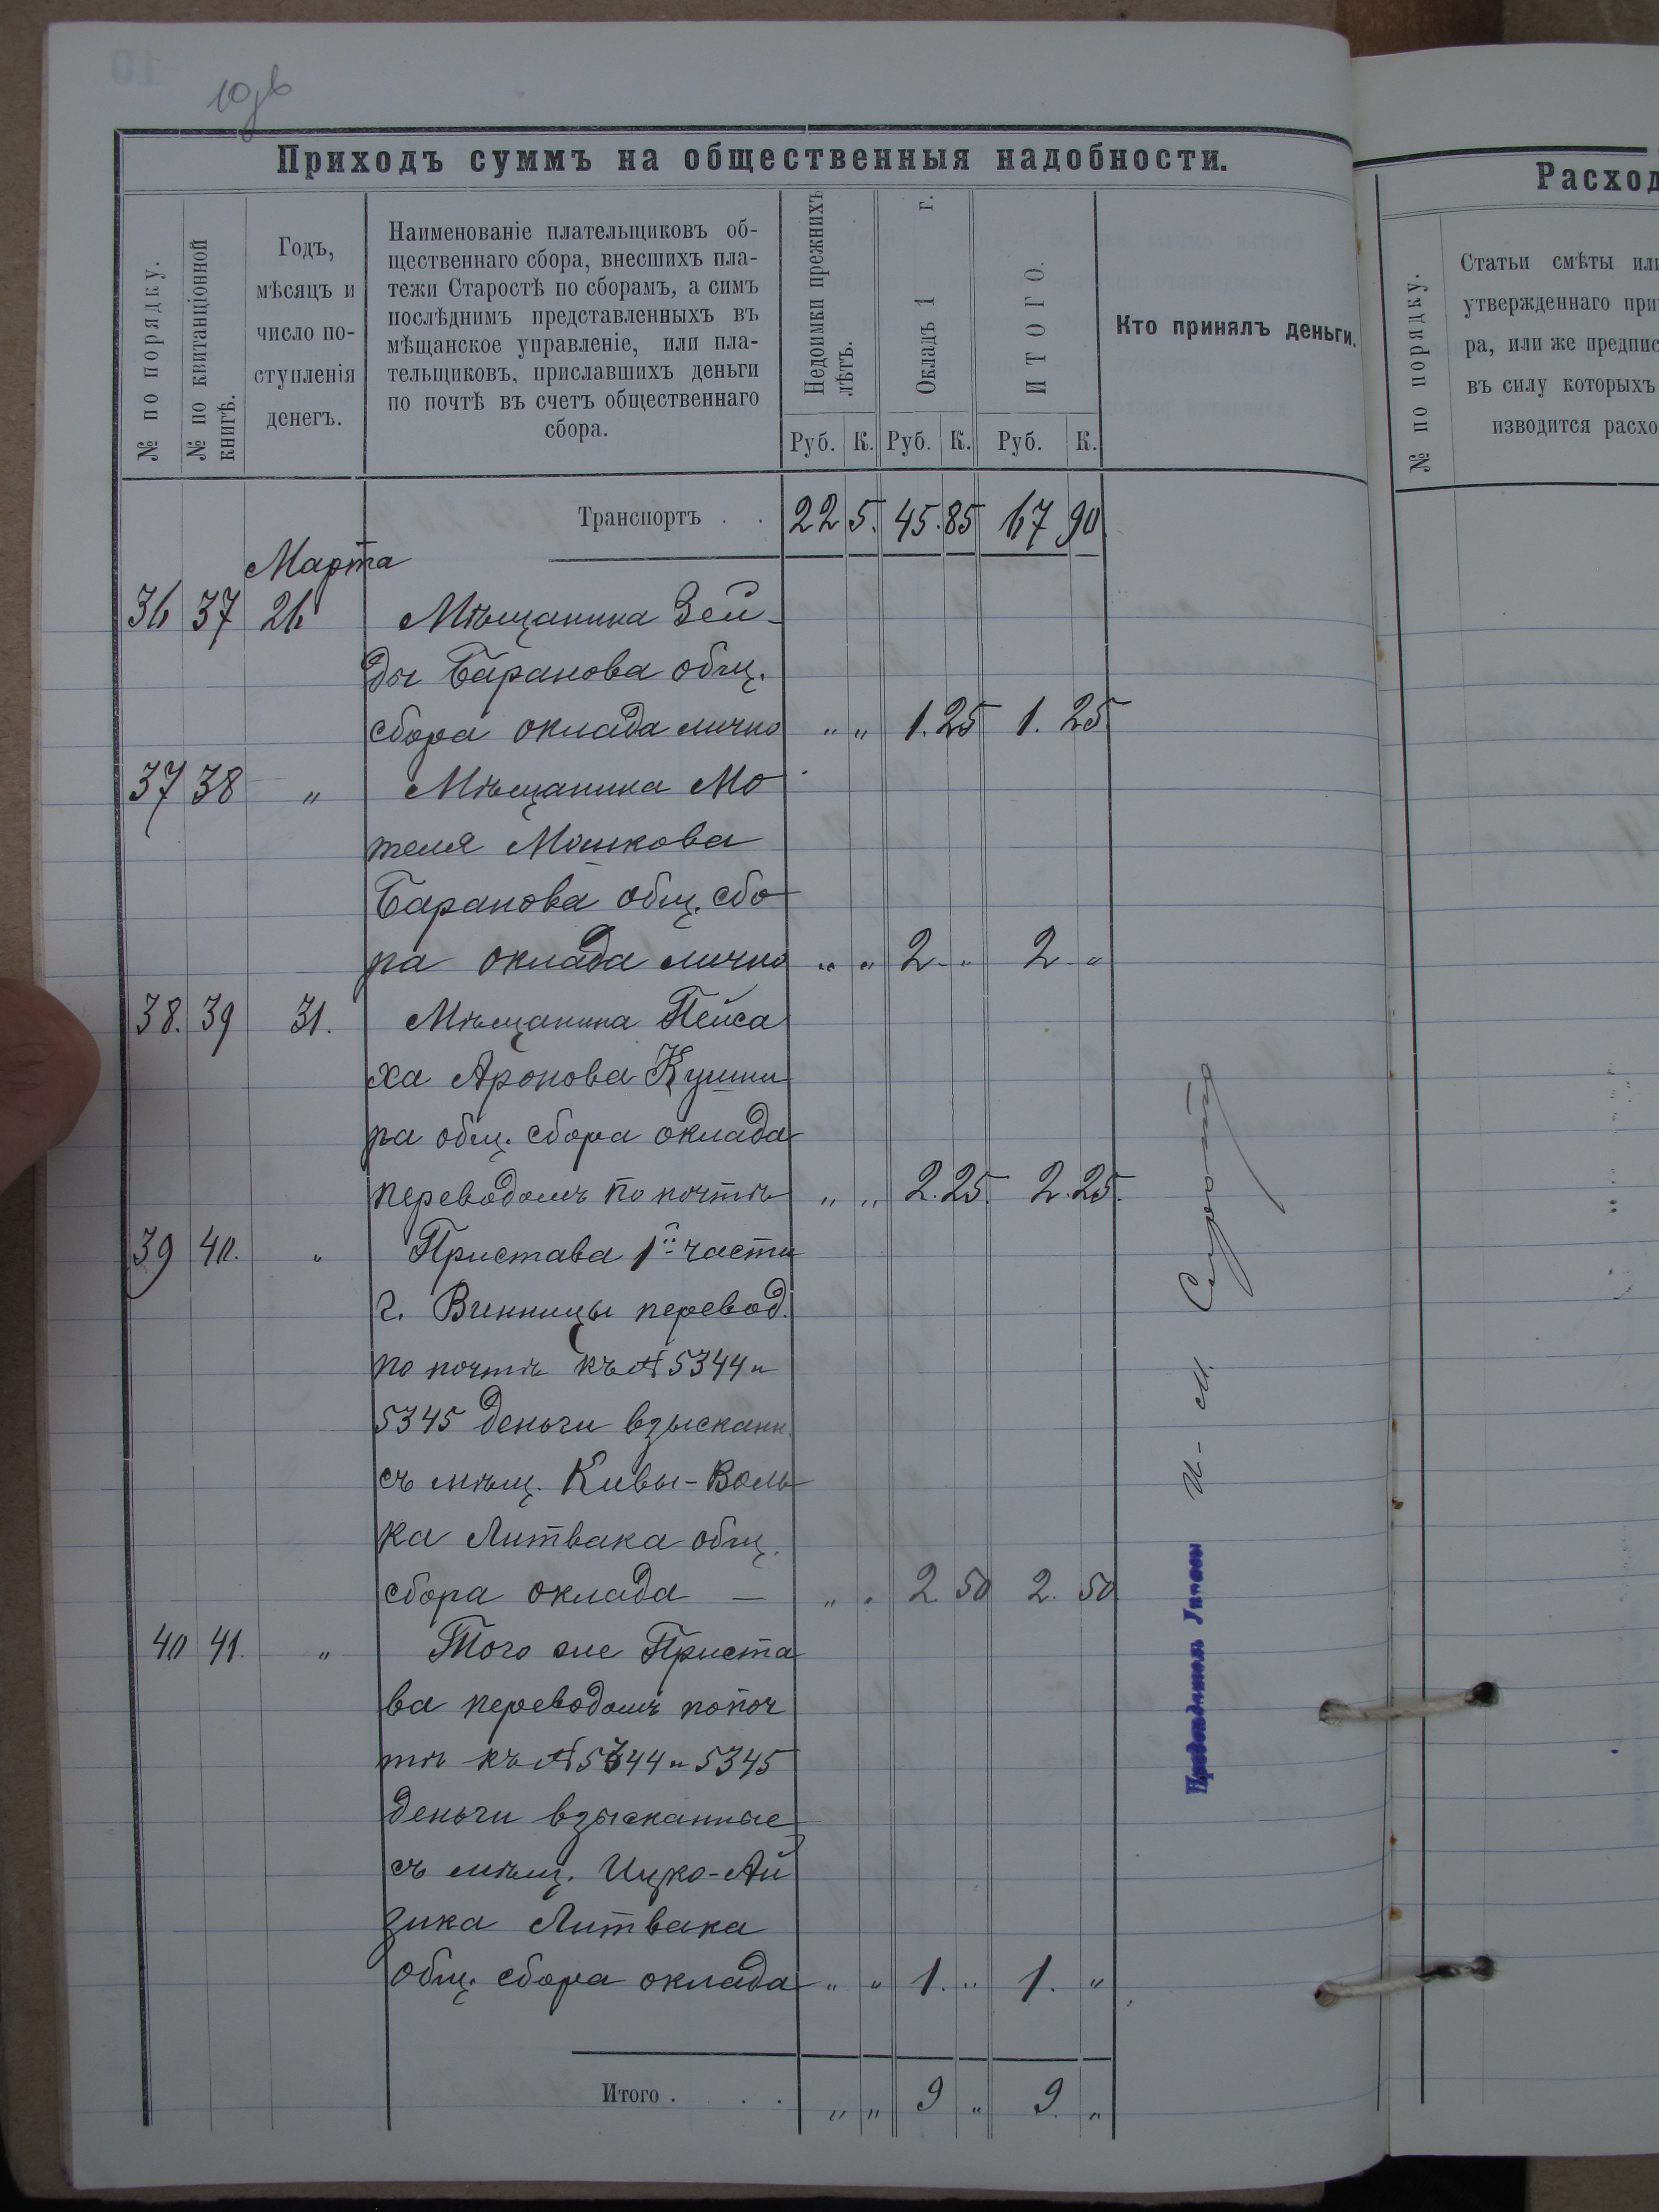 10об
Приходъ суммъ на общественныя надобности.
№ по порядку.
№ по квитанціонной книгѣ.
Годъ,
мѣсяцъ и
число по-
ступленія
денегъ.
Наименованіе плательщиковъ об-
щественнаго сбора, внесшихъ пла-
тежи Старостѣ по сборамъ, а симъ
послѣднимъ представленныхъ въ
мѣщанское управленіе, или пла-
тельщиковъ, приславшихъ деньги
по почтѣ въ счетъ общественнаго
сбора.
Недоимки прежнихъ лѣтъ.
Окладъ 1 г.
ИТОГО.
Кто принялъ деньги.
Руб. К. Руб. К. Руб. К.
Транспортъ . . 22 5. 45. 85 67 90
Марта
36 37 26 Мѣщанина Зей-
ды Баранова общ.
сбора оклада лично " " 1. 25 1. 25
37 38 " Мѣщанина Мо
теля Мошкова
Баранова общ. сбо
ра оклада лично " " 2 " 2 "
38. 39 31. Мѣщанина Пейса
ха Аронова Кушни
ра общ. сбора оклада
переводомъ по почтѣ " " 2. 25. 2. 25.
39 40. " Пристава 1й части
г. Винницы перевод.
по почтѣ къ № 5344 и
5345 деньги взыскани.
съ мѣщ. Кивы-Воль
ка Литвака общ.
сбора оклада — " " 2 50 2. 50
40 41. " Того же Приста
ва переводомъ по поч
тѣ къ № 5344 и 5345
деньги взысканные
съ мѣщ. Ицко-Ай
зика Литвака
общ. сбора оклада " " 1. " 1. "
Итого . . . " " 9 " 9. "
И. М.
Расход
№ по порядку.
Статьи смѣты или
утвержденнаго при
ра, или же предпис
въ силу которыхъ
изводится расхо